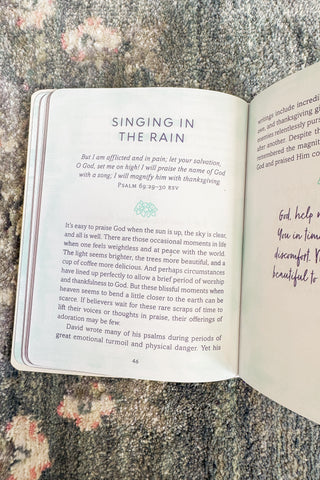 SINGING IN
THE RAIN
But I am afflicted and in pain; let your salvation,
O God, set me on high! I will praise the name of God
with a song; I will magnify him with thanksgiving
PSALM 69:29–30 RSV
It's easy to praise God when the sun is up, the sky is clear,
and all is well. There are those occasional moments in life
when one feels weightless and at peace with the world.
The light seems brighter, the trees more beautiful, and a
cup of coffee more delicious. And perhaps circumstances
have lined up perfectly to allow a brief period of worship
and thankfulness to God. But these blissful moments when
heaven seems to bend a little closer to the earth can be
scarce. If believers wait for these rare scraps of time to
lift their voices or thoughts in praise, their offerings of
adoration may be few.
David wrote many of his psalms during periods of
great emotional turmoil and physical danger. Yet his
46
writings include incredi
own, and thanksgiving
enemies relentlessly pursu
after another. Despite th
remembered the magnit
and God praised Him co
God, help m
You in tim
discomfort.
beautiful to